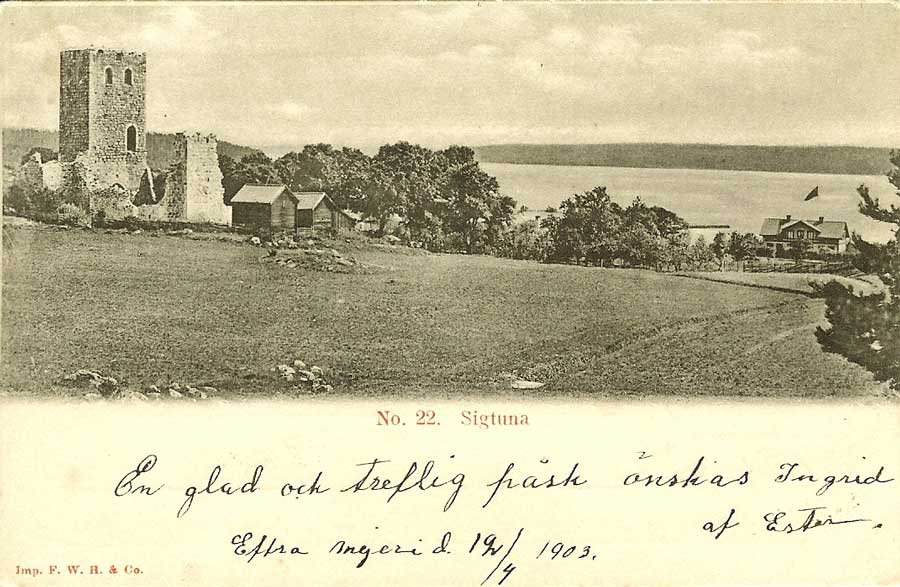 No. 22. Sigtuna
En glad och treflig påsk önskas Ingrid
af Ester.
Eftra mejeri d. 12/4 1903.
Imp. F. W. H. & Co.